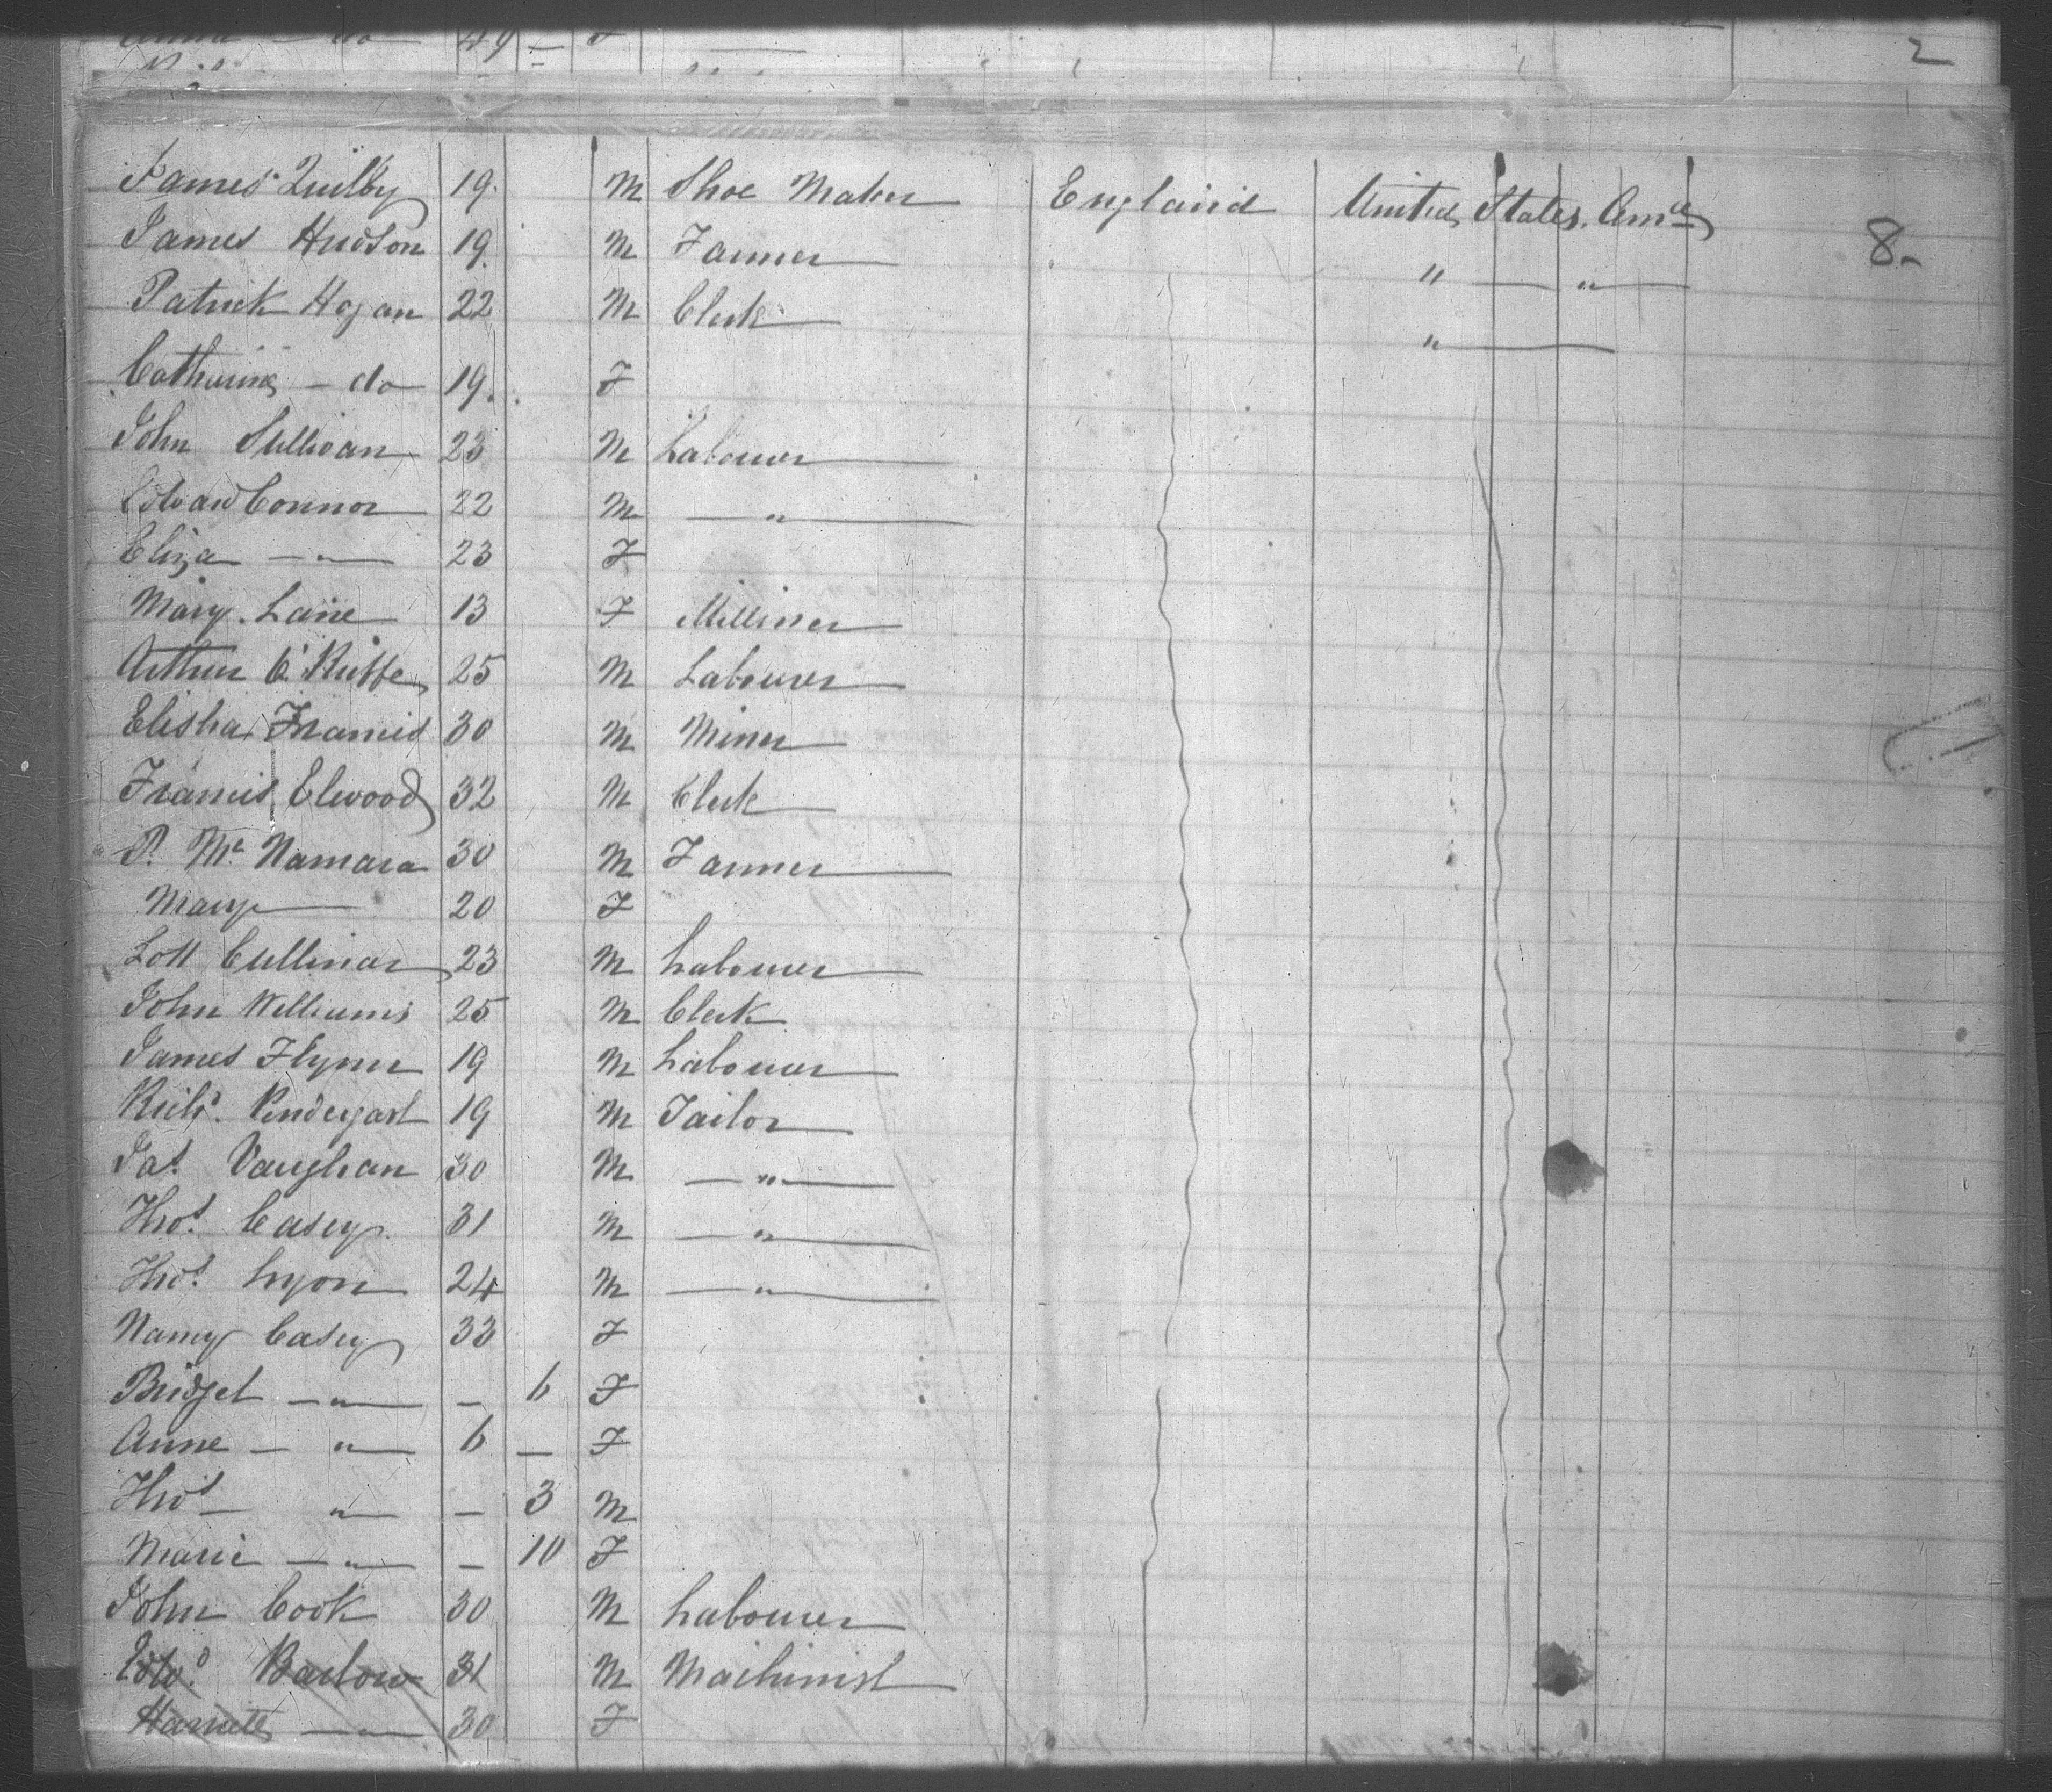 Anna — do — 49 — F
2
James Quilby 19 M Shoe Maker England United States Amca
James Hudson 19 M Farmer " "
8
Patrick Hogan 22 M Clerk "
Catharine — do 19 F
John Sullivan 23 M Labourer
Edward Connor 22 M — " —
Eliza — " — 23 F
Mary Lane 13 F Milliner
Arthur O'Kieffe 25 M Labourer
Elisha Francis 30 M Miner
Francis Elwood 32 M Clerk
P. Mc Namara 30 M Farmer
Mary — 20 F
Lott Cullinan 23 M Labourer
John Williams 25 M Clerk
James Flynn 19 M Labourer
Richd. Pendergast 19 M Tailor
Pat. Vaughan 30 M — " —
Thos. Casey 31 M — " —
Thos. Lyon 24 M — " —
Nancy Casey 33 F
Bridget — " — — 6 F
Anne — " — 6 — F
Thos — " — — 3 M
Marie — " — — 10 F
John Cook 30 M Labourer
Edwd. Barlow 31 M Machinist
Harriett — " — 30 F